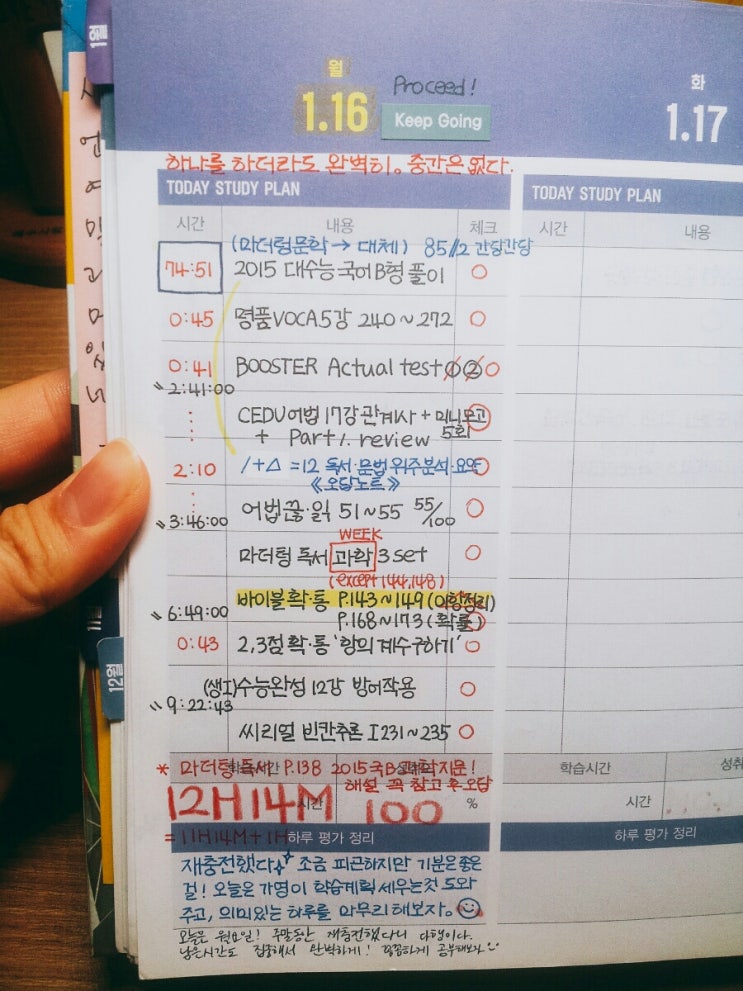 월 Proceed! 화
1.16 Keep Going 1.17
하나를 하더라도 완벽히. 중간은 없다.
TODAY STUDY PLAN TODAY STUDY PLAN
시간 내용 체크 시간 내용
(마더텅문학 → 대체) 85/12 간당간당
74:51 2015 대수능 국어B형 풀이
0:45 명품VOCA 5강 240~272
0:41 BOOSTER Actual test ① ②
2:41:00
CEDU어법 17강 관계사 + 미니모고
+ Part 1. review 5회
2:10 /+△ =12 독서·문법 위주분석·요약
《오답노트》
어법끝·읽 51~55 55/100
3:46:00
WEEK
마더텅 독서 과학 3set
(except 144,148)
바이블 확·통 P.143~149 (이항정리)
6:49:00 P.168~173 (확률)
0:43 2,3점 확·통 '항의 계수구하기'
(생I)수능완성 12강 방어작용
9:22:43
씨리얼 빈칸추론 I 231~235
* 마더텅 독서 P.138 2015 국B 과학지문!
학습시간 학습시간 성취
해설 꼭 참고 후 오답
12H 14M 시간 100 % 시간
= 11H14M+1H 하루 평가 정리 하루 평가 정리
재충전했다 조금 피곤하지만 기분은 좋은
걸! 오늘은 가영이 학습계획 세우는것 도와
주고, 의미있는 하루를 마무리 해보자.
오늘은 월요일! 주말동안 재충전했다니 다행이다.
남은시간도 집중해서 완벽하게! 꼼꼼하게 공부해보자
12월